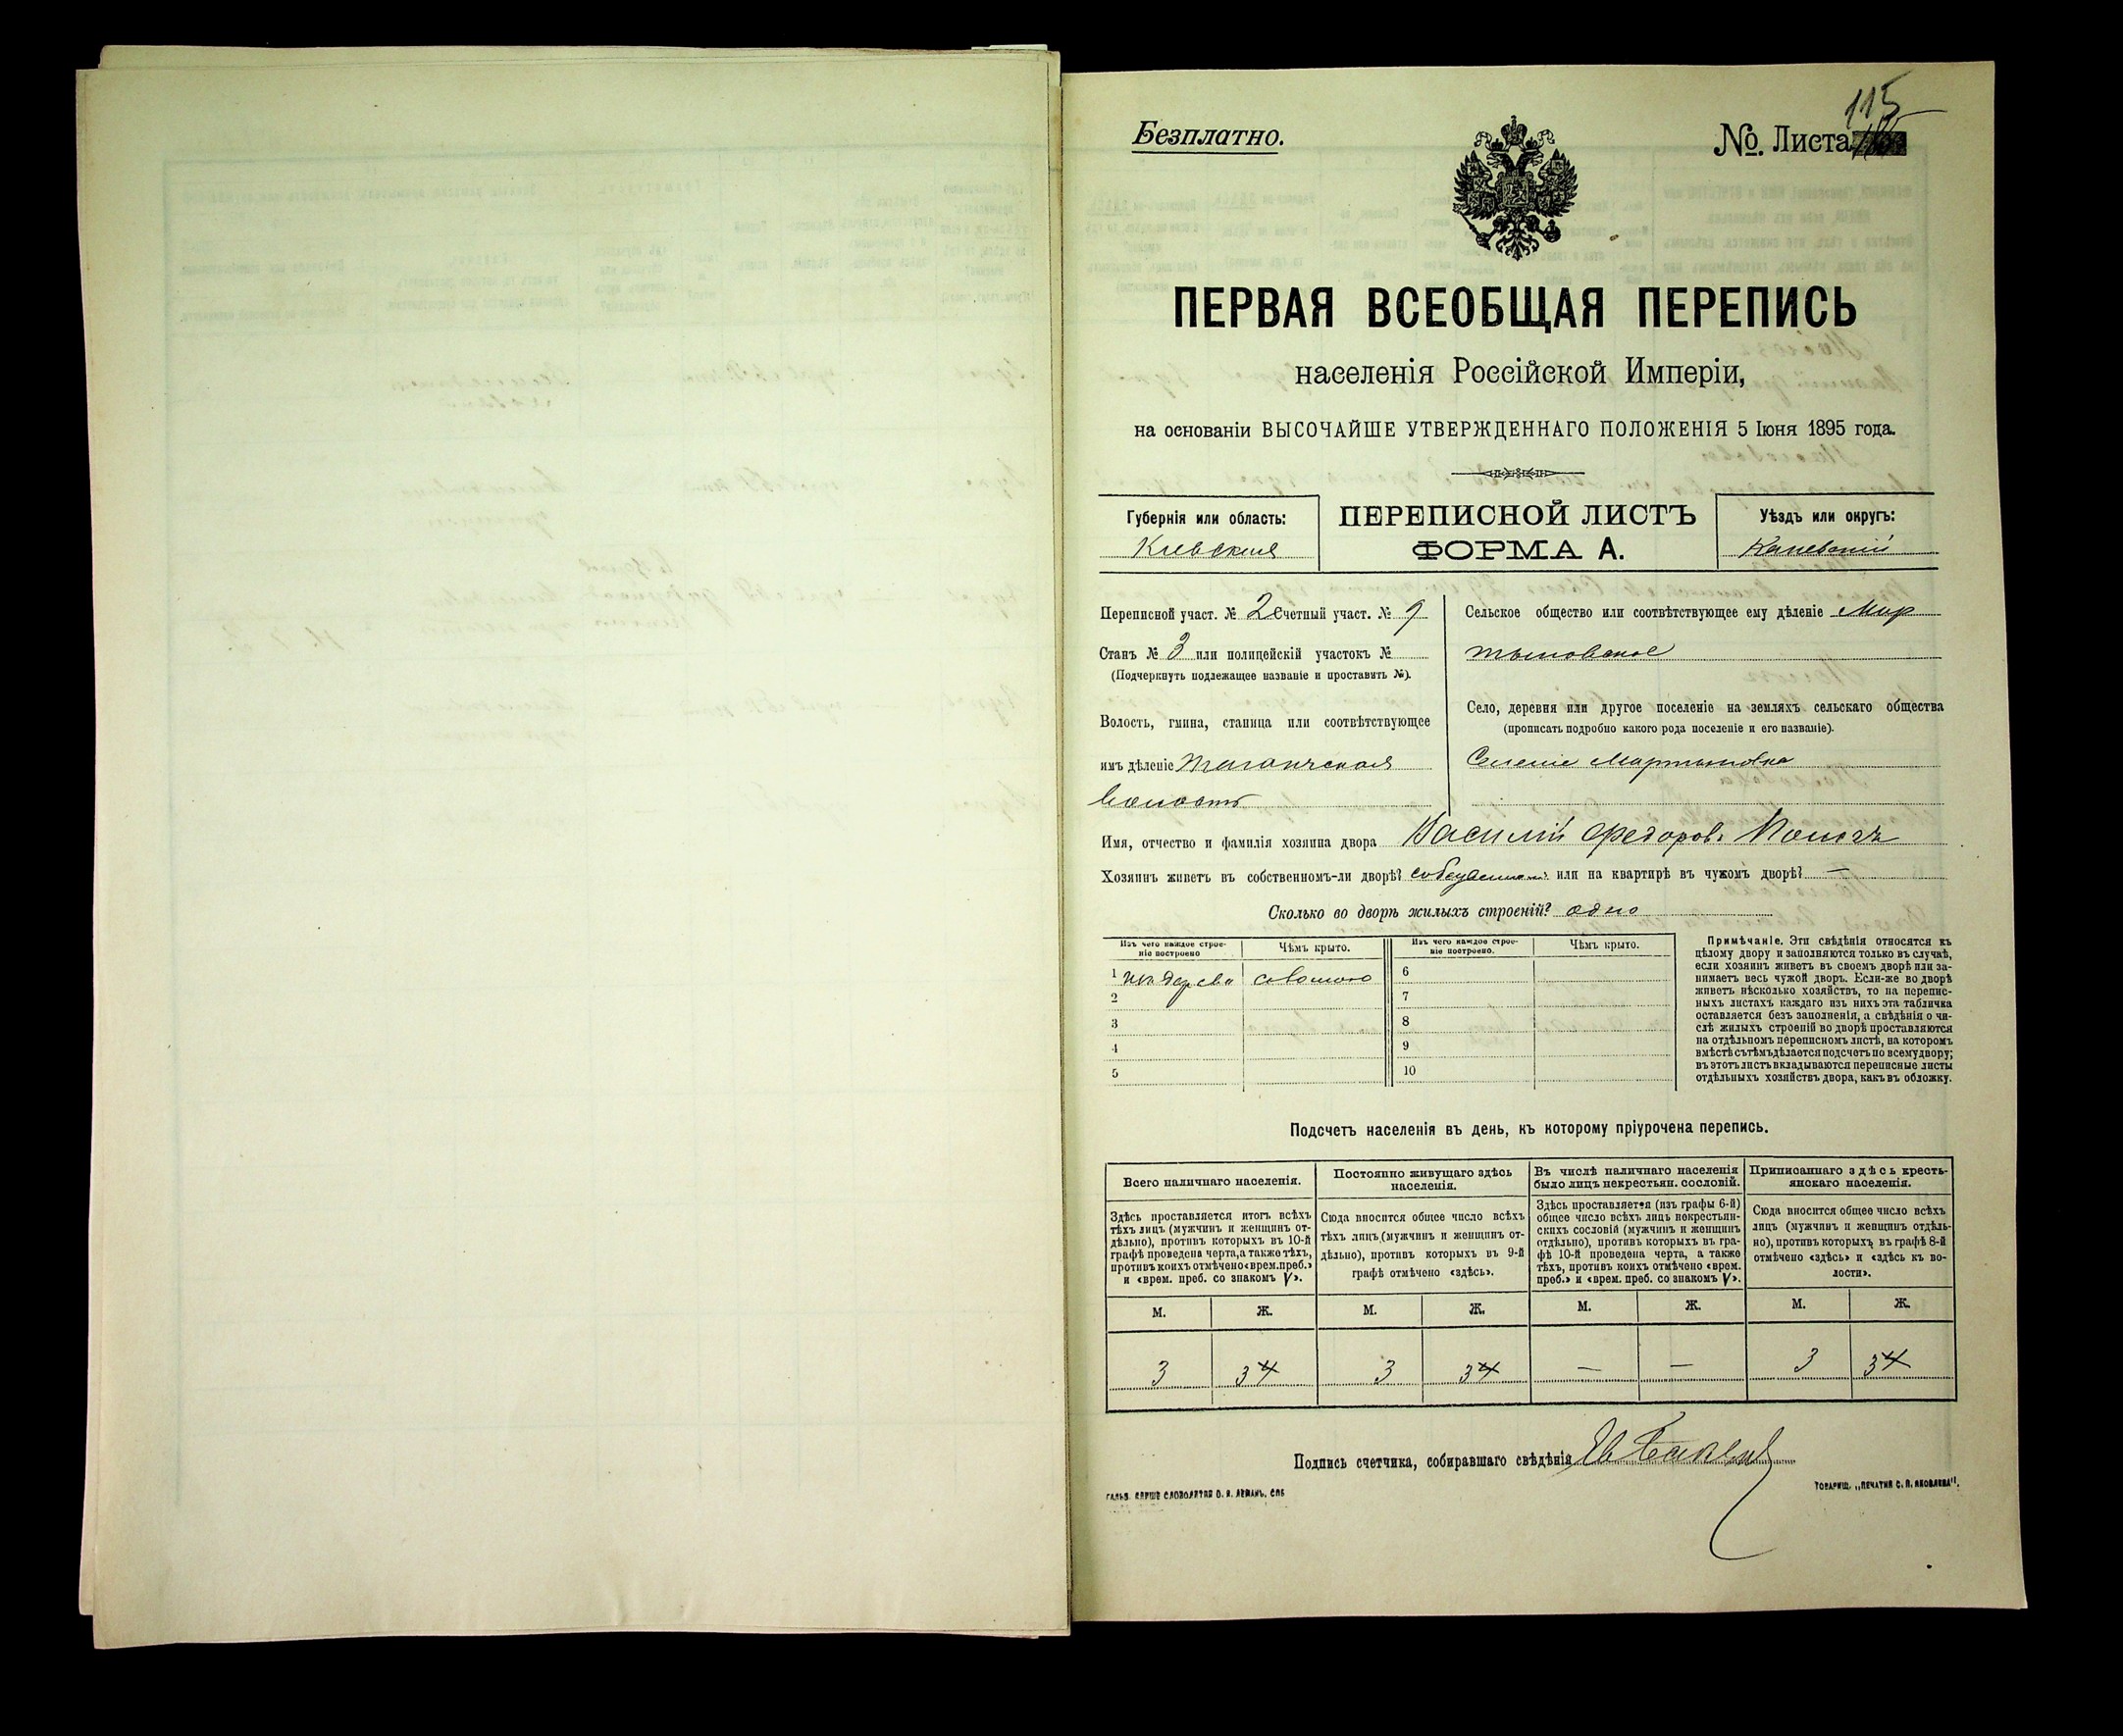 Безплатно.
№. Листа 115
ПЕРВАЯ ВСЕОБЩАЯ ПЕРЕПИСЬ
населенія Россійской Имперіи,
на основаніи ВЫСОЧАЙШЕ УТВЕРЖДЕННАГО ПОЛОЖЕНІЯ 5 Іюня 1895 года.
Губернія или область:
Кіевская
ПЕРЕПИСНОЙ ЛИСТЪ
ФОРМА А.
Уѣздъ или округъ:
Каневскій
Переписной участ. № 2 Счетный участ. № 9
Станъ № 3 или полицейскій участокъ №
(Подчеркнуть подлежащее названіе и проставить №).
Волость, гмина, станица или соотвѣтствующее
имъ дѣленіе Таганчская
волость
Сельское общество или соотвѣтствующее ему дѣленіе Мар
тыновское
Село, деревня или другое поселеніе на земляхъ сельскаго общества
(прописать подробно какого рода поселеніе и его названіе).
Селеніе Мартыновка
Имя, отчество и фамилія хозяина двора Василій Федоровъ
Хозяинъ живетъ въ собственномъ-ли дворѣ? или на квартирѣ въ чужомъ дворѣ? —
Сколько во дворѣ жилыхъ строеній? одно
Изъ чего каждое строе-
ніе построено
Чѣмъ крыто.
Изъ чего каждое строе-
ніе построено.
Чѣмъ крыто.
1 изъ дерева соломою
2
3
4
5
6
7
8
9
10
Примѣчаніе. Эти свѣдѣнія относятся къ
цѣлому двору и заполняются только въ случаѣ,
если хозяинъ живетъ въ своемъ дворѣ или за-
нимаетъ весь чужой дворъ. Если-же во дворѣ
живетъ нѣсколько хозяйствъ, то на перепис-
ныхъ листахъ каждаго изъ нихъ эта табличка
оставляется безъ заполненія, а свѣдѣнія о чи-
слѣ жилыхъ строеній во дворѣ проставляются
на отдѣльномъ переписномъ листѣ, на которомъ
вмѣстѣ съ тѣмъ дѣлается подсчетъ по всему двору;
въ этотъ листъ вкладываются переписные листы
отдѣльныхъ хозяйствъ двора, какъ въ обложку.
Подсчетъ населенія въ день, къ которому пріурочена перепись.
Всего наличнаго населенія.
Здѣсь проставляется итогъ всѣхъ
тѣхъ лицъ (мужчинъ и женщинъ от-
дѣльно), противъ которыхъ въ 10-й
графѣ проведена черта, а также тѣхъ,
противъ коихъ отмѣчено «врем. преб.»
и «врем. преб. со знакомъ V».
Постоянно живущаго здѣсь
населенія.
Сюда вносится общее число всѣхъ
тѣхъ лицъ (мужчинъ и женщинъ от-
дѣльно), противъ которыхъ въ 9-й
графѣ отмѣчено «здѣсь».
Въ числѣ наличнаго населенія
было лицъ некрестьян. сословій.
Здѣсь проставляется (изъ графы 6-й)
общее число всѣхъ лицъ некрестьян-
скихъ сословій (мужчинъ и женщинъ
отдѣльно), противъ которыхъ въ гра-
фѣ 10-й проведена черта, а также
тѣхъ, противъ коихъ отмѣчено «врем.
преб.» и «врем. преб. со знакомъ V».
Приписаннаго здѣсь кресть-
янскаго населенія.
Сюда вносится общее число всѣхъ
лицъ (мужчинъ и женщинъ отдѣль-
но), противъ которыхъ въ графѣ 8-й
отмѣчено «здѣсь» и «здѣсь къ во-
лости».
М. Ж. М. Ж. М. Ж. М. Ж.
3 3 4 3 3 4 — — 3 3 4
Подпись счетчика, собиравшаго свѣдѣнія
ТОВАРИЩ. „ПЕЧАТНЯ С. П. ЯКОВЛЕВА".